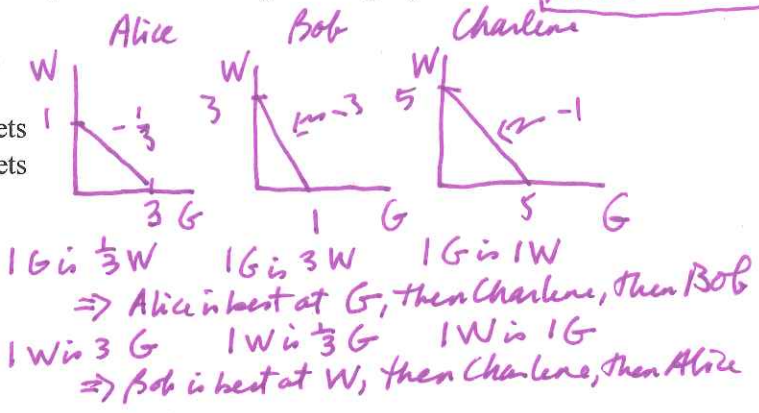 Alice Bob Charlene
W W W
ets 1 -1/3 3 -3 5 -1
ets
3 G 1 G 5 G
1G is 1/3 W 1G is 3 W 1G is 1W
=> Alice is best at G, then Charlene, then Bob
1W is 3 G 1W is 1/3 G 1W is 1G
=> Bob is best at W, then Charlene, then Alice